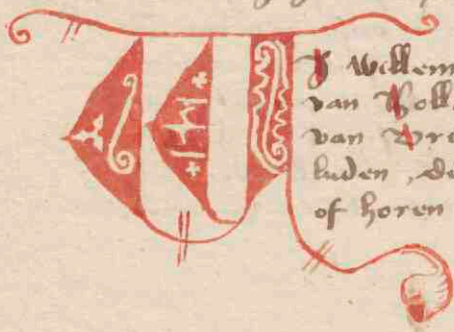 W
J Willem
van Holl
van Vre
luden, de
of horen